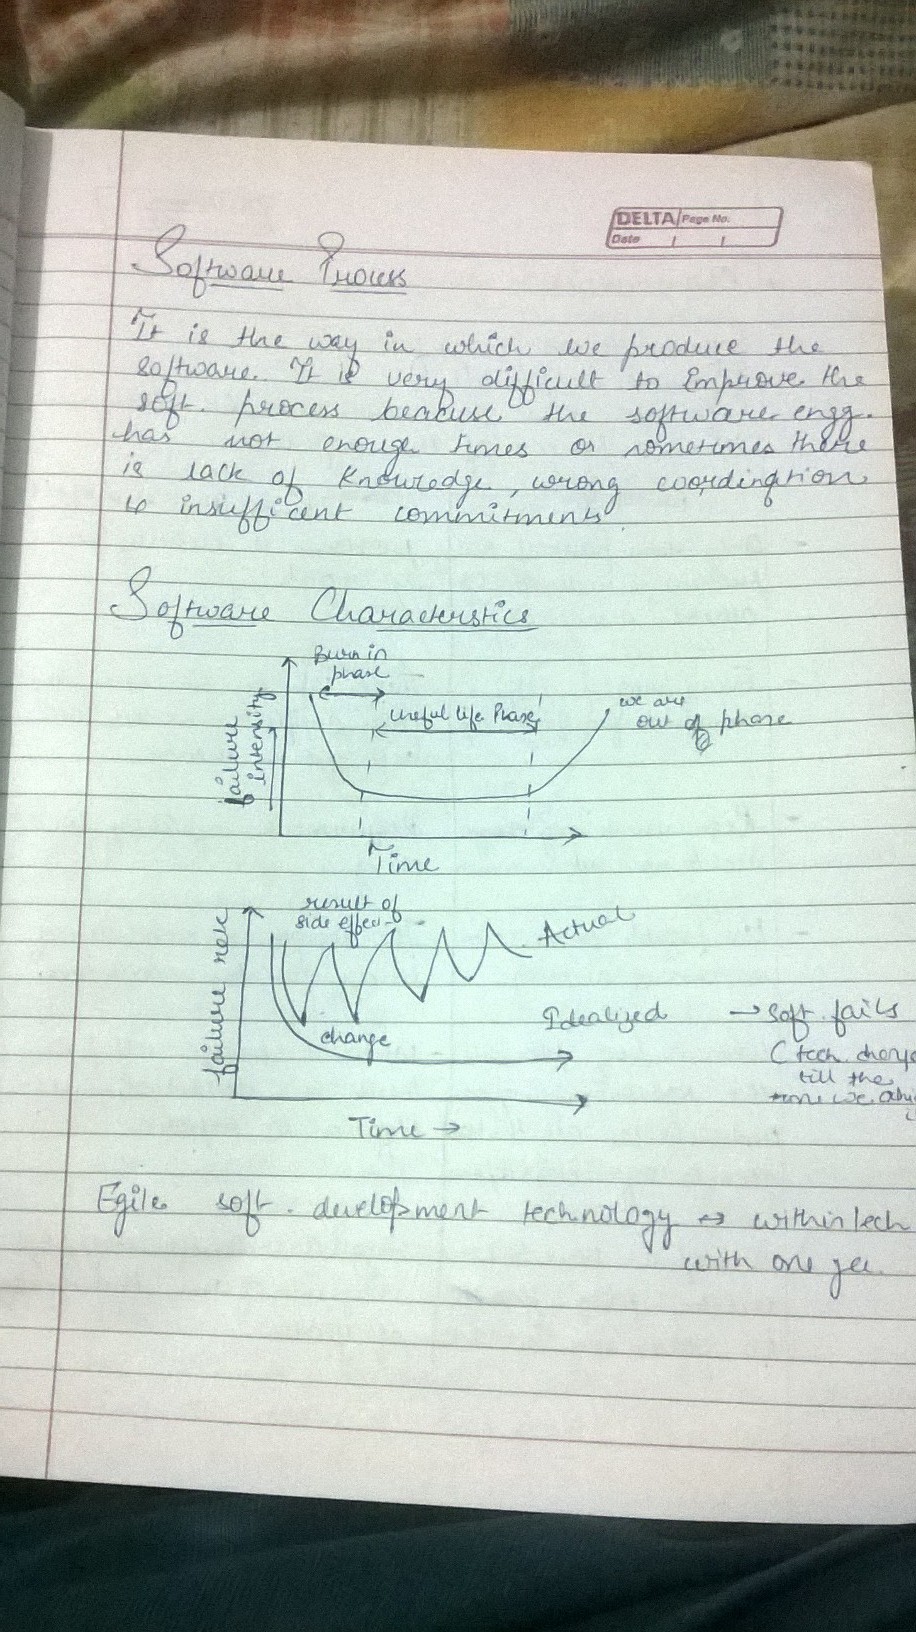 DELTA Page No.
Date
Software Process
It is the way in which we produce the
software. It is very difficult to improve the
soft. process beacuse the software engg.
has not enouge times or sometimes there
is lack of knowledge, wrong coordination
& insufficent commitments
Software Characterstics
Burn in
phase
useful life Phase
we are
out of phase
failure
intensity
Time
result of
side effect
Actual
failure rate
change
Idealized
→ soft. fails
( tech. change
till the
time we
Time →
Egile soft. development technology ↔ within tech
with one